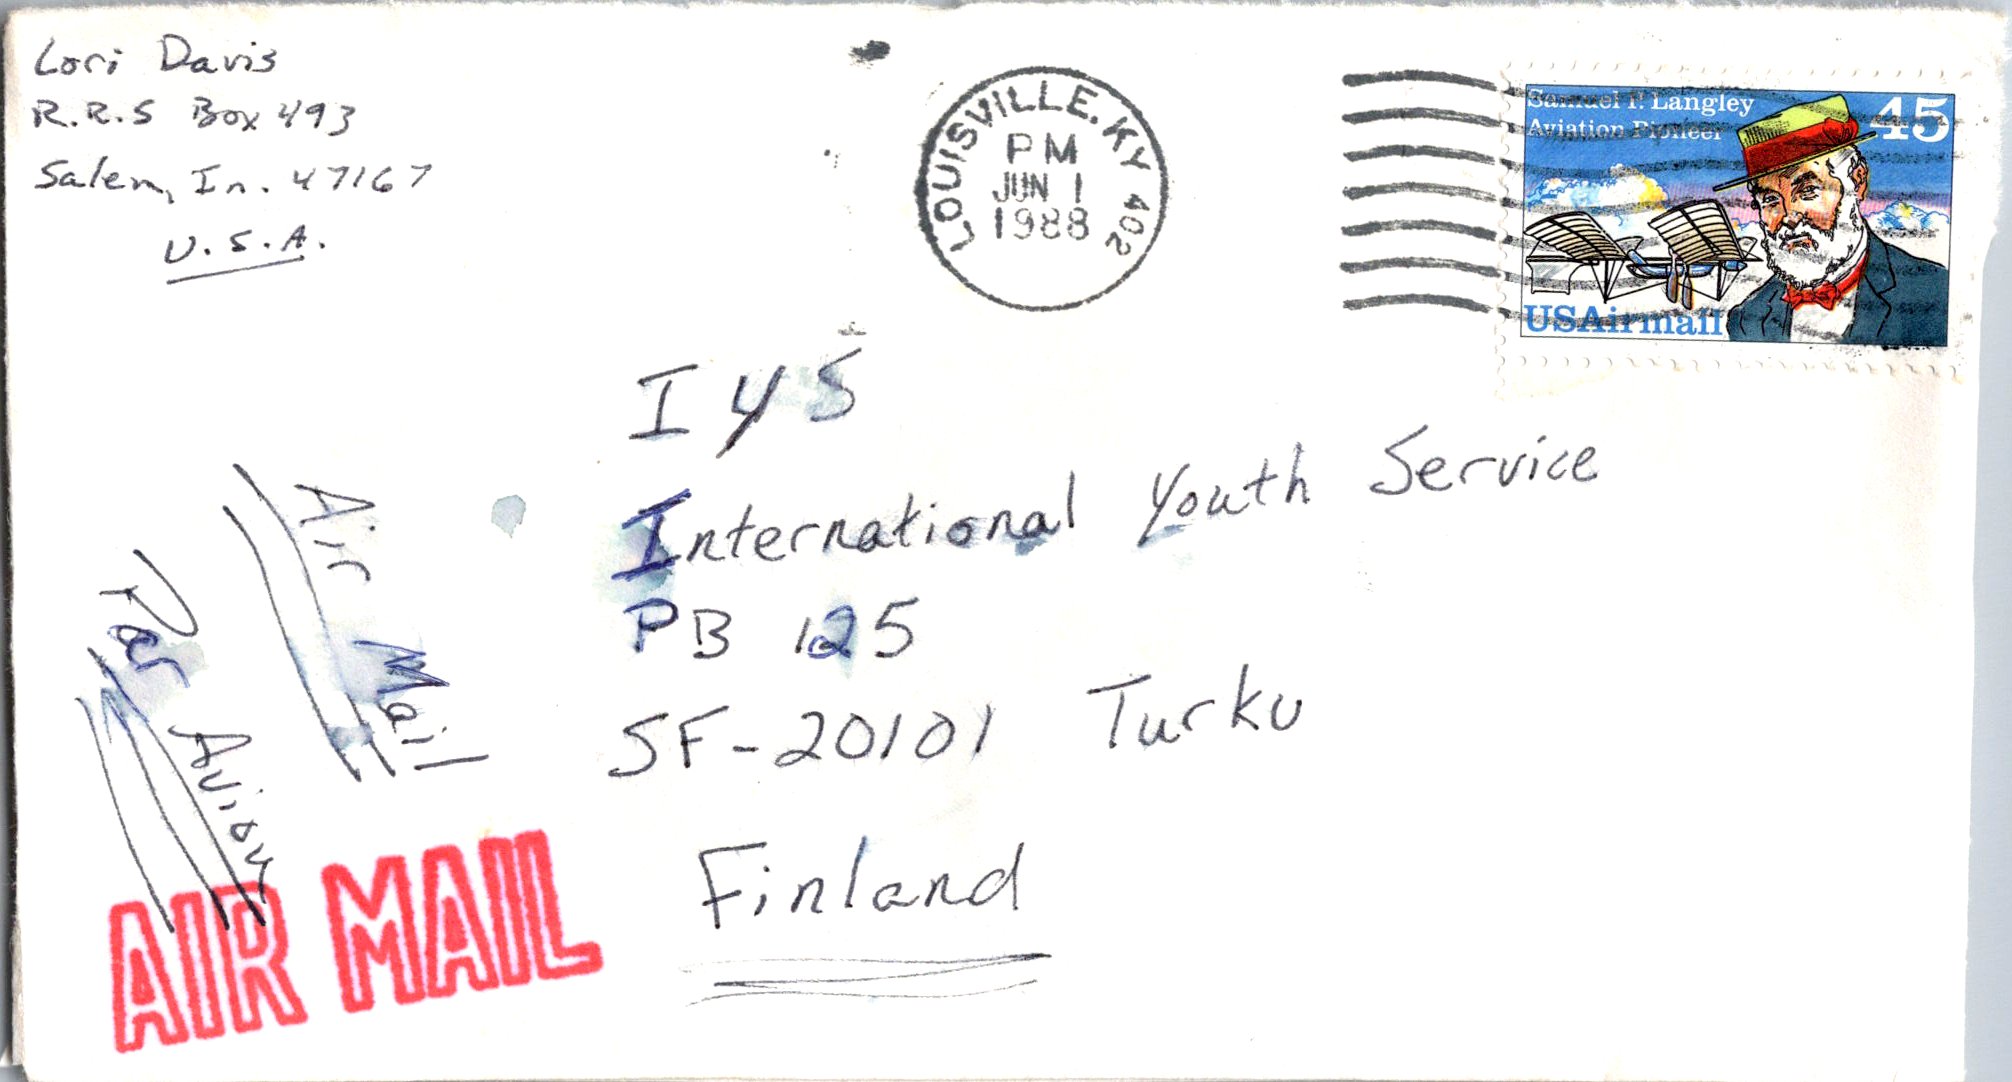 Lori Davis
R.R.5 Box 493
Salem, In. 47167
U.S.A.
LOUISVILLE, KY 402
PM
JUN 1
1988
Samuel P. Langley
Aviation Pioneer
45
USAirmail
IYS
International Youth Service
PB 125
SF-20101 Turku
Finland
Air Mail
Par Avion
AIR MAIL